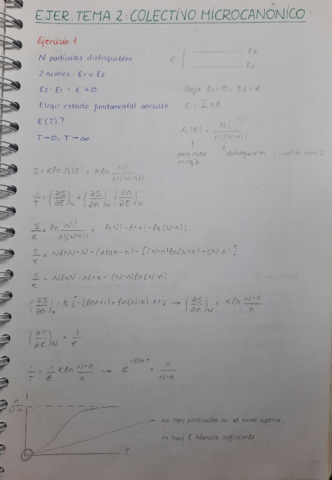 EJER. TEMA 2: COLECTIVO MICROCANÓNICO
Ejercicio 1
N partículas distinguibles
2 niveles E1 y E2
E2 - E1 = ε > 0
Elegir estado fundamental sencillo
E(T)?
T→0, T→∞
E2
E1
Elijo E1 = 0, E2 = ε
E = nε
Ω(E) = N!/(n!(N-n)!)
S = k ln Ω(E) = k ln N!/(n!(N-n)!)
1/T = (∂S/∂E)_N = (∂S/∂n)_N (∂n/∂E)_N
S/k = ln N!/(n!(N-n)!) = ln N! - ln n! - ln(N-n)!
S/k = N ln N - N - (n ln n - n) - [(N-n) ln(N-n) - (N-n)]
S/k = N ln N - n ln n - (N-n) ln(N-n)
(∂S/∂n)_N = k ln (N-n)/n
(∂n/∂E)_N = 1/ε
1/T = 1/ε k ln (N-n)/n → e^(-ε/kT) = n/(N-n)
n/(N-n)
T
no hay partículas en el nivel superior,
no hay E térmica suficiente